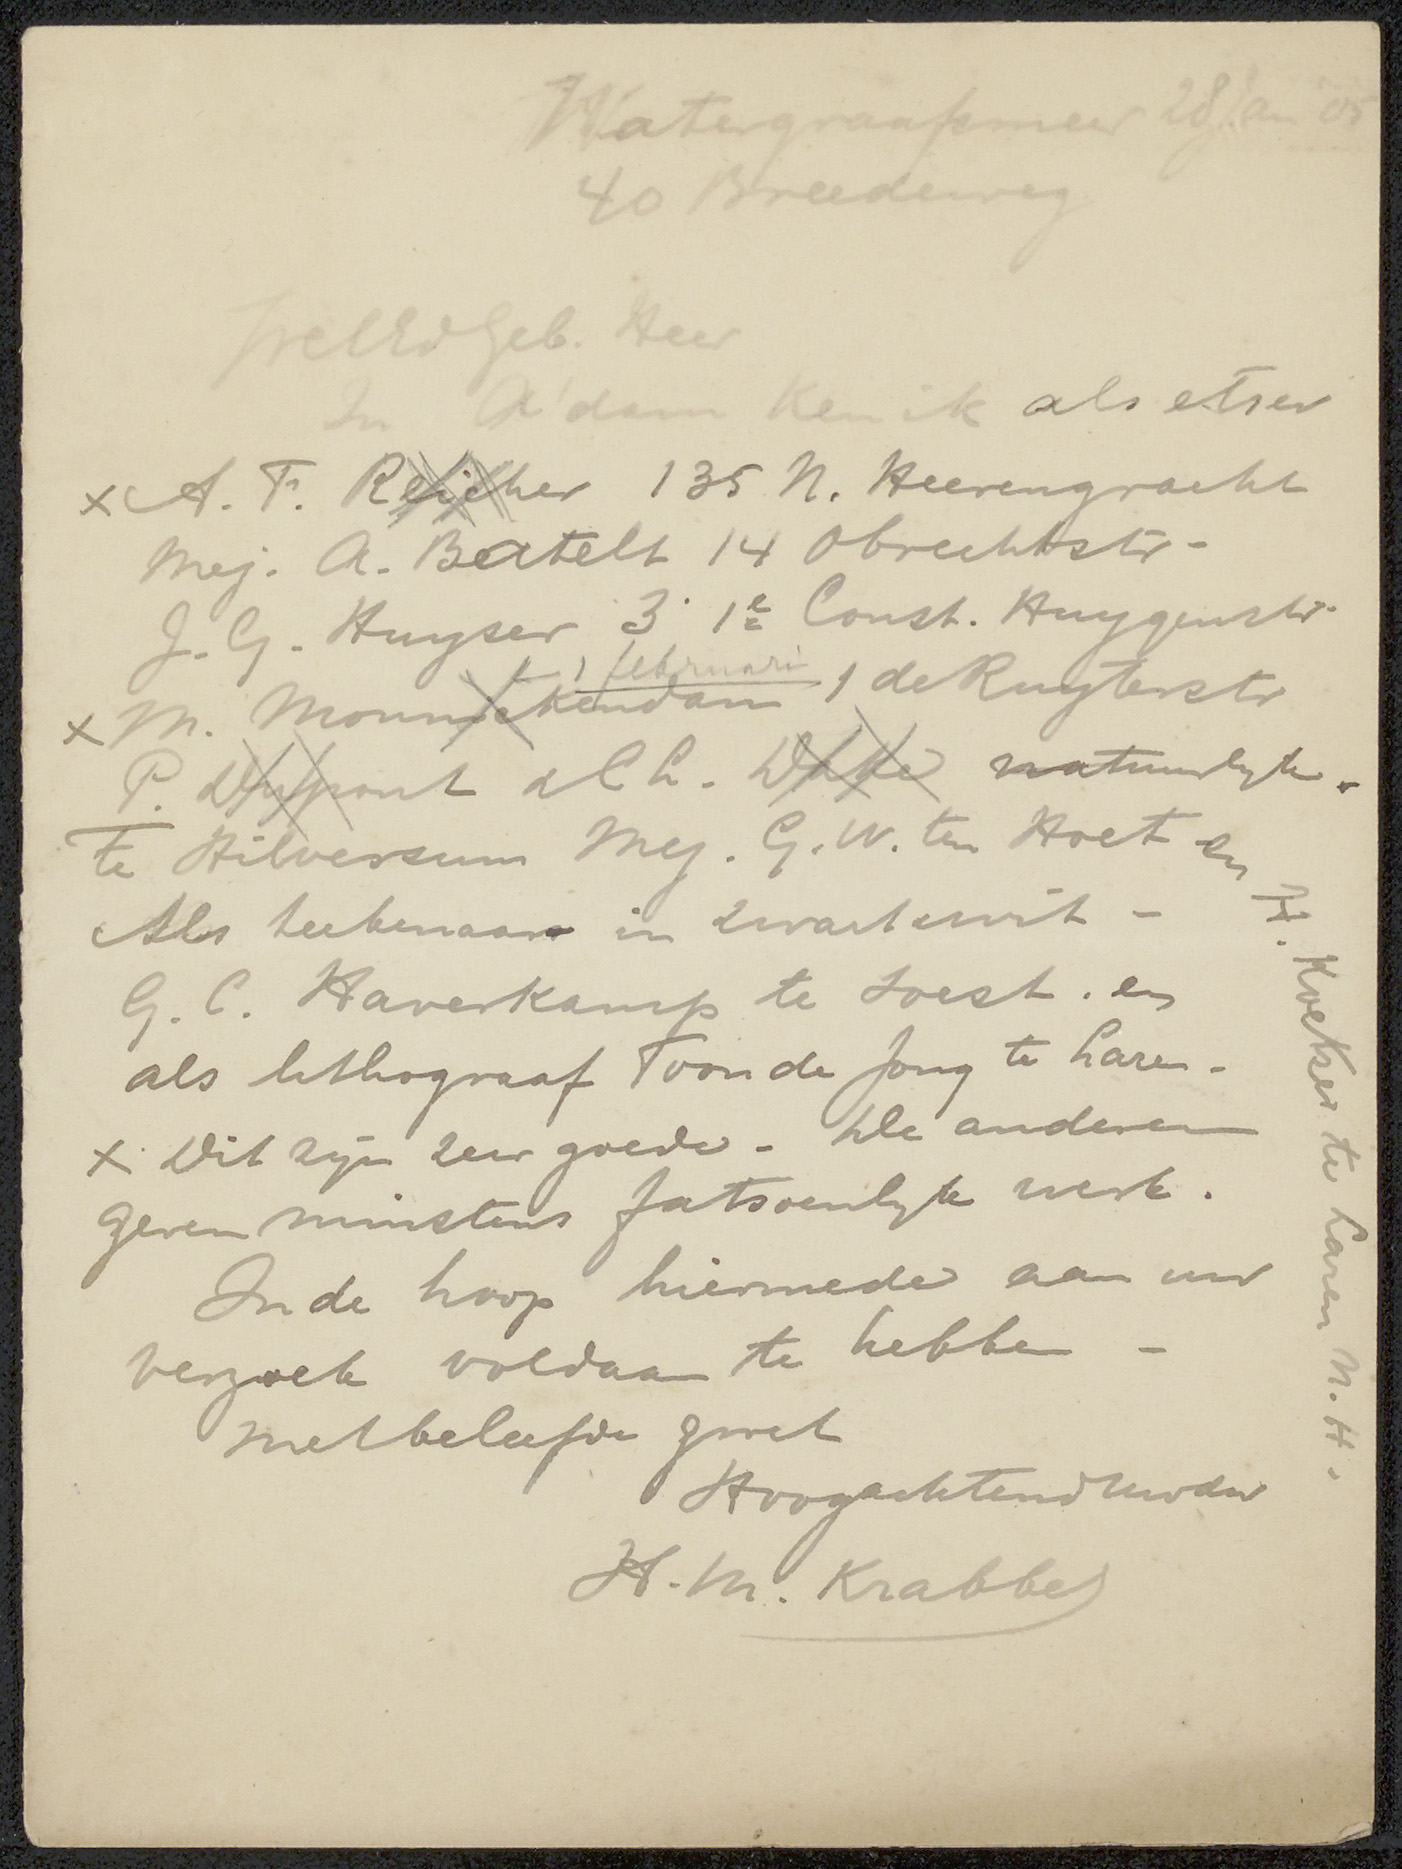 Watergraafsmeer 28 Jan 05
40 Breedeweg
WelEdGeb. Heer
In A'dam ken ik als etser
x A. F. Reicher 135 N. Heerengracht
Mej. A. Batelt 14 Obrechtstr-
J. G. Huyser 3 1e Const. Huygenstr.
1 februari
x M. Monnickendam 1 de Ruyterstr
P. Dupont al h. natuurlyk.
Te Hilversum Mej. G. W. ten Hoet en
H. Koekser te Laren N. H.
Als teekenaar in zwart en wit -
G. C. Haverkamp te Soest. en
als lithograaf Toon de Jong te Laren -
x Dit zyn zeer goede - De anderen
geven minstens fatsoenlyk werk.
In de hoop hiermede aan uw
verzoek voldaan te hebben -
met beleefde groet
Hoogachtend Uwdw
H. M. Krabbé